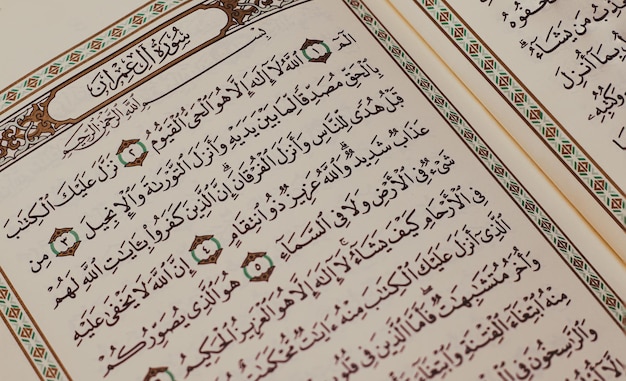 سُورَةُ آلِ عِمْرَانَ
بِسْمِ ٱللَّهِ ٱلرَّحْمَٰنِ ٱلرَّحِيمِ
الٓمٓ ١ ٱللَّهُ لَآ إِلَٰهَ إِلَّا هُوَ ٱلْحَىُّ ٱلْقَيُّومُ ٢ نَزَّلَ عَلَيْكَ ٱلْكِتَٰبَ
بِٱلْحَقِّ مُصَدِّقًا لِّمَا بَيْنَ يَدَيْهِ وَأَنزَلَ ٱلتَّوْرَىٰةَ وَٱلْإِنجِيلَ ٣ مِن
قَبْلُ هُدًى لِّلنَّاسِ وَأَنزَلَ ٱلْفُرْقَانَ ۗ إِنَّ ٱلَّذِينَ كَفَرُوا۟ بِـَٔايَٰتِ ٱللَّهِ لَهُمْ
عَذَابٌ شَدِيدٌ ۗ وَٱللَّهُ عَزِيزٌ ذُو ٱنتِقَامٍ ٤ إِنَّ ٱللَّهَ لَا يَخْفَىٰ عَلَيْهِ
شَىْءٌ فِى ٱلْأَرْضِ وَلَا فِى ٱلسَّمَآءِ ٥ هُوَ ٱلَّذِى يُصَوِّرُكُمْ
فِى ٱلْأَرْحَامِ كَيْفَ يَشَآءُ ۚ لَآ إِلَٰهَ إِلَّا هُوَ ٱلْعَزِيزُ ٱلْحَكِيمُ
ٱلَّذِىٓ أَنزَلَ عَلَيْكَ ٱلْكِتَٰبَ مِنْهُ ءَايَٰتٌ مُّحْكَمَٰتٌ
وَأُخَرُ مُتَشَٰبِهَٰتٌ ۖ فَأَمَّا ٱلَّذِينَ فِى
مِنْهُ ٱبْتِغَآءَ ٱلْفِتْنَةِ وَٱبْتِغَآءَ
وَٱلرَّٰسِخُونَ فِى
تُخْفُوهُ
مَن يَشَآءُ
بِمَآ أُنزِلَ
وَكُتُبِهِۦ